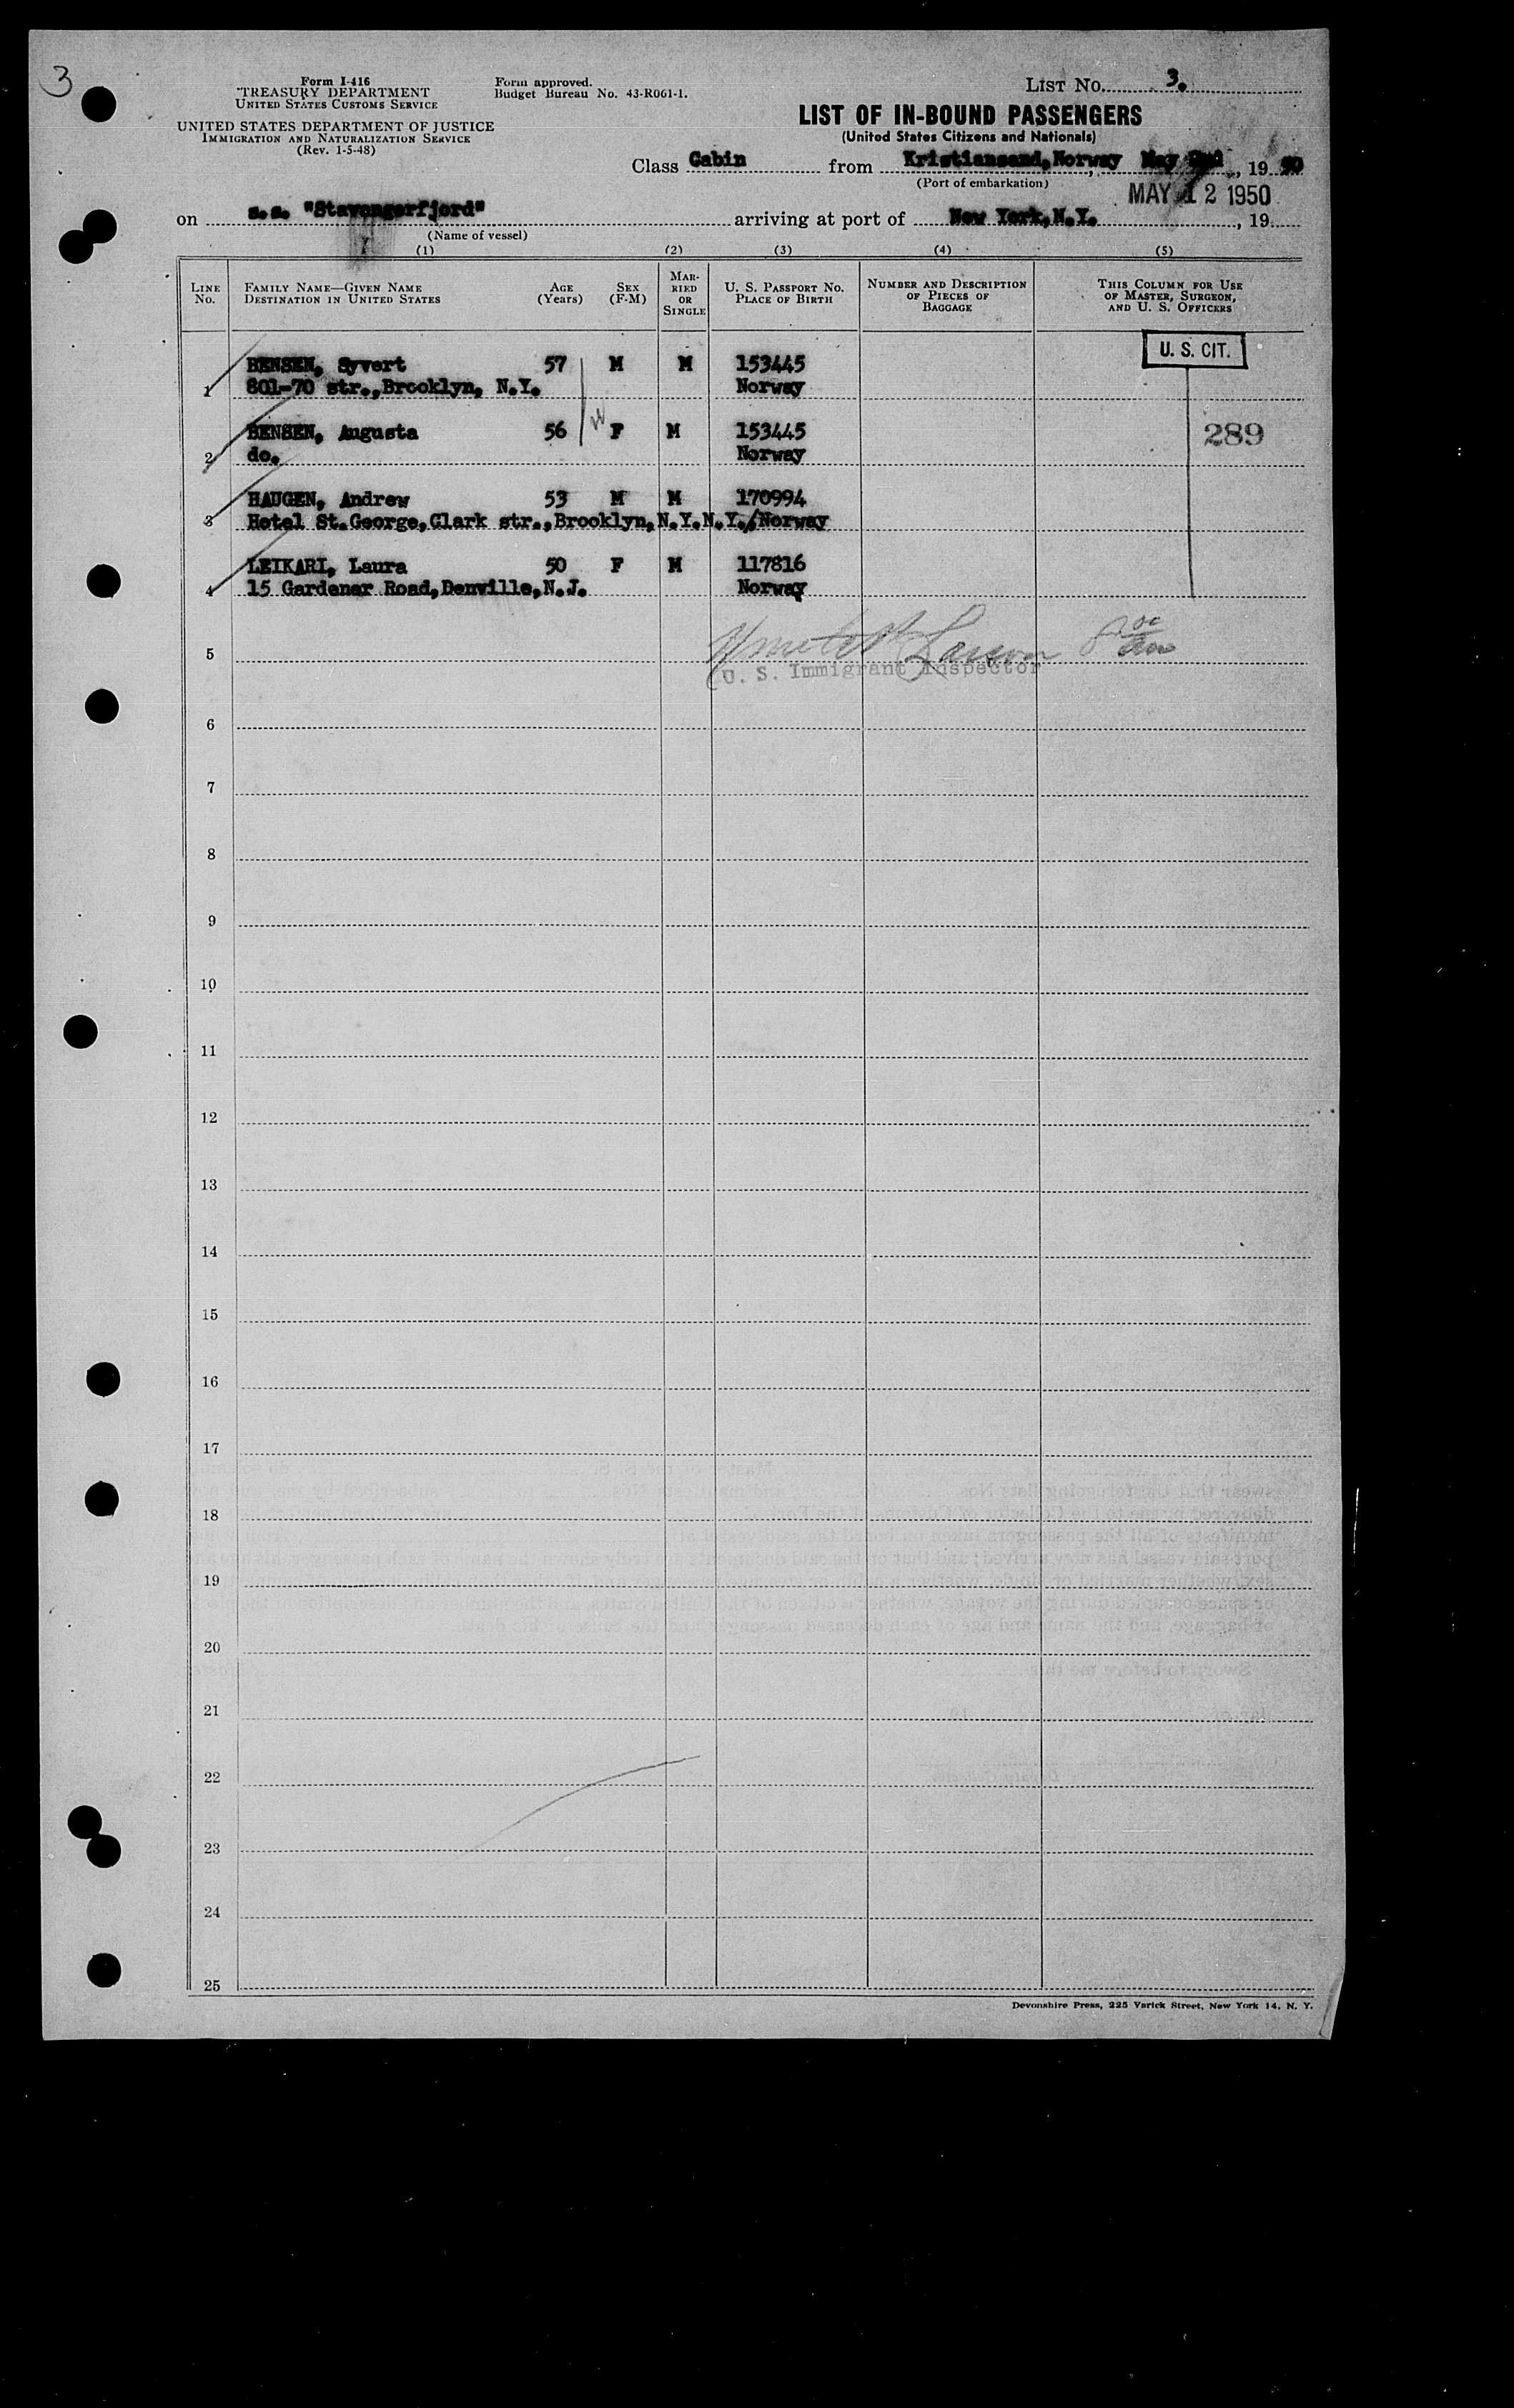 3
Form I-416
TREASURY DEPARTMENT
UNITED STATES CUSTOMS SERVICE
UNITED STATES DEPARTMENT OF JUSTICE
IMMIGRATION AND NATURALIZATION SERVICE
(Rev. 1-5-48)
Form approved.
Budget Bureau No. 43-R061-1.
LIST No. 3.
LIST OF IN-BOUND PASSENGERS
(United States Citizens and Nationals)
Class Cabin from Kristiansand, Norway, May 2nd, 19 50
(Port of embarkation)
MAY 12 1950
on s.s. "Stavangerfjord" arriving at port of New York, N.Y., 19
(Name of vessel)
(1) (2) (3) (4) (5)
LINE No. FAMILY NAME—GIVEN NAME DESTINATION IN UNITED STATES AGE (Years) SEX (F-M) MARRIED OR SINGLE U. S. PASSPORT No. PLACE OF BIRTH NUMBER AND DESCRIPTION OF PIECES OF BAGGAGE THIS COLUMN FOR USE OF MASTER, SURGEON, AND U. S. OFFICERS
U. S. CIT.
BENSEN, Syvert 57 M M 153445
1 801-70 str., Brooklyn, N.Y. Norway
BENSEN, Augusta 56 F M 153445 289
2 do. Norway
HAUGEN, Andrew 53 M M 170994
3 Hotel St.George, Clark str., Brooklyn, N.Y.N.Y./Norway
LEIKARI, Laura 50 F M 117816
4 15 Gardener Road, Denville, N.J. Norway
5
U. S. Immigrant Inspector
6
7
8
9
10
11
12
13
14
15
16
17
18
19
20
21
22
23
24
25
Devonshire Press, 225 Varick Street, New York 14, N. Y.